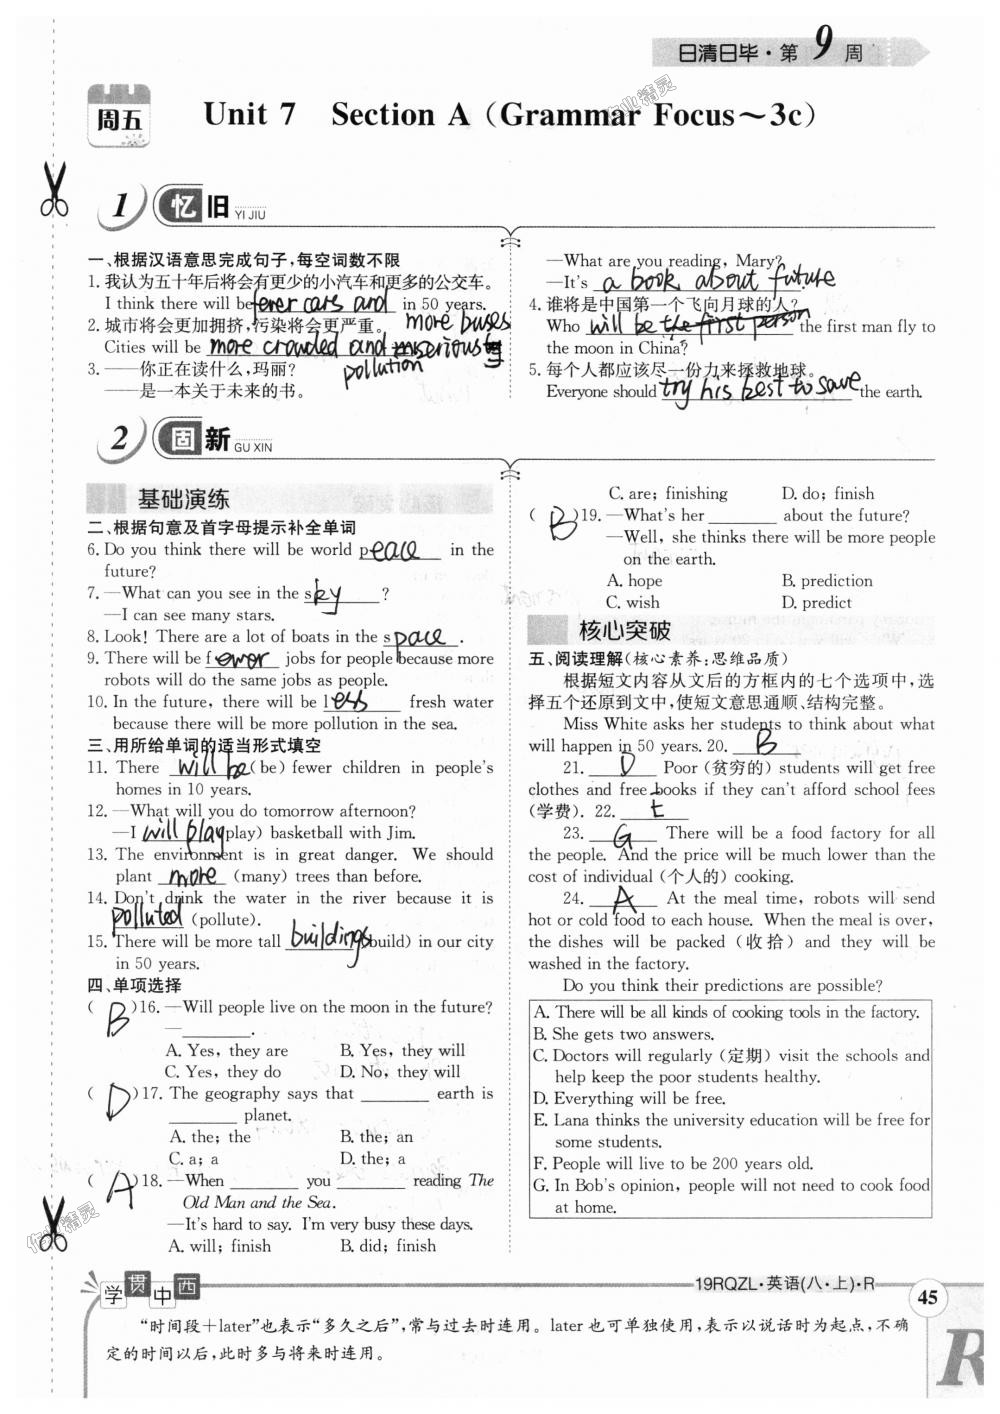 日清日毕·第9周
周五
Unit 7 Section A (Grammar Focus~3c)
1 忆旧 YI JIU
一、根据汉语意思完成句子,每空词数不限
1. 我认为五十年后将会有更少的小汽车和更多的公交车。
I think there will be fewer cars and in 50 years.
more buses
2. 城市将会更加拥挤,污染将会更严重。
Cities will be more crowded and serious
pollution
3. ——你正在读什么,玛丽?
——是一本关于未来的书。
—What are you reading, Mary?
—It's a book about future
4. 谁将是中国第一个飞向月球的人?
Who will be the first person the first man fly to
the moon in China?
5. 每个人都应该尽一份力来拯救地球。
Everyone should try his best to save the earth.
2 固新 GU XIN
基础演练
二、根据句意及首字母提示补全单词
6. Do you think there will be world peace in the
future?
7. —What can you see in the sky ?
—I can see many stars.
8. Look! There are a lot of boats in the space .
9. There will be fewer jobs for people because more
robots will do the same jobs as people.
10. In the future, there will be less fresh water
because there will be more pollution in the sea.
三、用所给单词的适当形式填空
11. There will be (be) fewer children in people's
homes in 10 years.
12. —What will you do tomorrow afternoon?
—I will play (play) basketball with Jim.
13. The environment is in great danger. We should
plant more (many) trees than before.
14. Don't drink the water in the river because it is
polluted (pollute).
15. There will be more tall buildings (build) in our city
in 50 years.
四、单项选择
( B )16. —Will people live on the moon in the future?
—________.
A. Yes, they are B. Yes, they will
C. Yes, they do D. No, they will
( D )17. The geography says that ________ earth is
________ planet.
A. the; the B. the; an
C. a; a D. the; a
( A )18. —When ________ you ________ reading The
Old Man and the Sea.
—It's hard to say. I'm very busy these days.
A. will; finish B. did; finish
C. are; finishing D. do; finish
( B )19. —What's her ________ about the future?
—Well, she thinks there will be more people
on the earth.
A. hope B. prediction
C. wish D. predict
核心突破
五、阅读理解(核心素养:思维品质)
根据短文内容从文后的方框内的七个选项中,选
择五个还原到文中,使短文意思通顺、结构完整。
Miss White asks her students to think about what
will happen in 50 years. 20. B
21. D Poor (贫穷的) students will get free
clothes and free books if they can't afford school fees
(学费). 22. E
23. G There will be a food factory for all
the people. And the price will be much lower than the
cost of individual (个人的) cooking.
24. A At the meal time, robots will send
hot or cold food to each house. When the meal is over,
the dishes will be packed (收拾) and they will be
washed in the factory.
Do you think their predictions are possible?
A. There will be all kinds of cooking tools in the factory.
B. She gets two answers.
C. Doctors will regularly (定期) visit the schools and
help keep the poor students healthy.
D. Everything will be free.
E. Lana thinks the university education will be free for
some students.
F. People will live to be 200 years old.
G. In Bob's opinion, people will not need to cook food
at home.
学贯中西
19RQZL·英语(八·上)·R
45
“时间段+later”也表示“多久之后”,常与过去时连用。later也可单独使用,表示以说话时为起点,不确
定的时间以后,此时多与将来时连用。
R